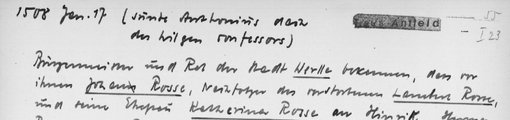 1508 Jan. 17 (sunte Anthonius dach
des hilgen confessors)
Haus Anfeld
55
I 23
Bürgermeister und Rat der Stadt Werlle bekennen, dass vor
ihnen Johann Rosse, Nachfolger des verstorbenen Lambert Rosse,
und seine Ehefrau Katherina Rosse an Hinrik